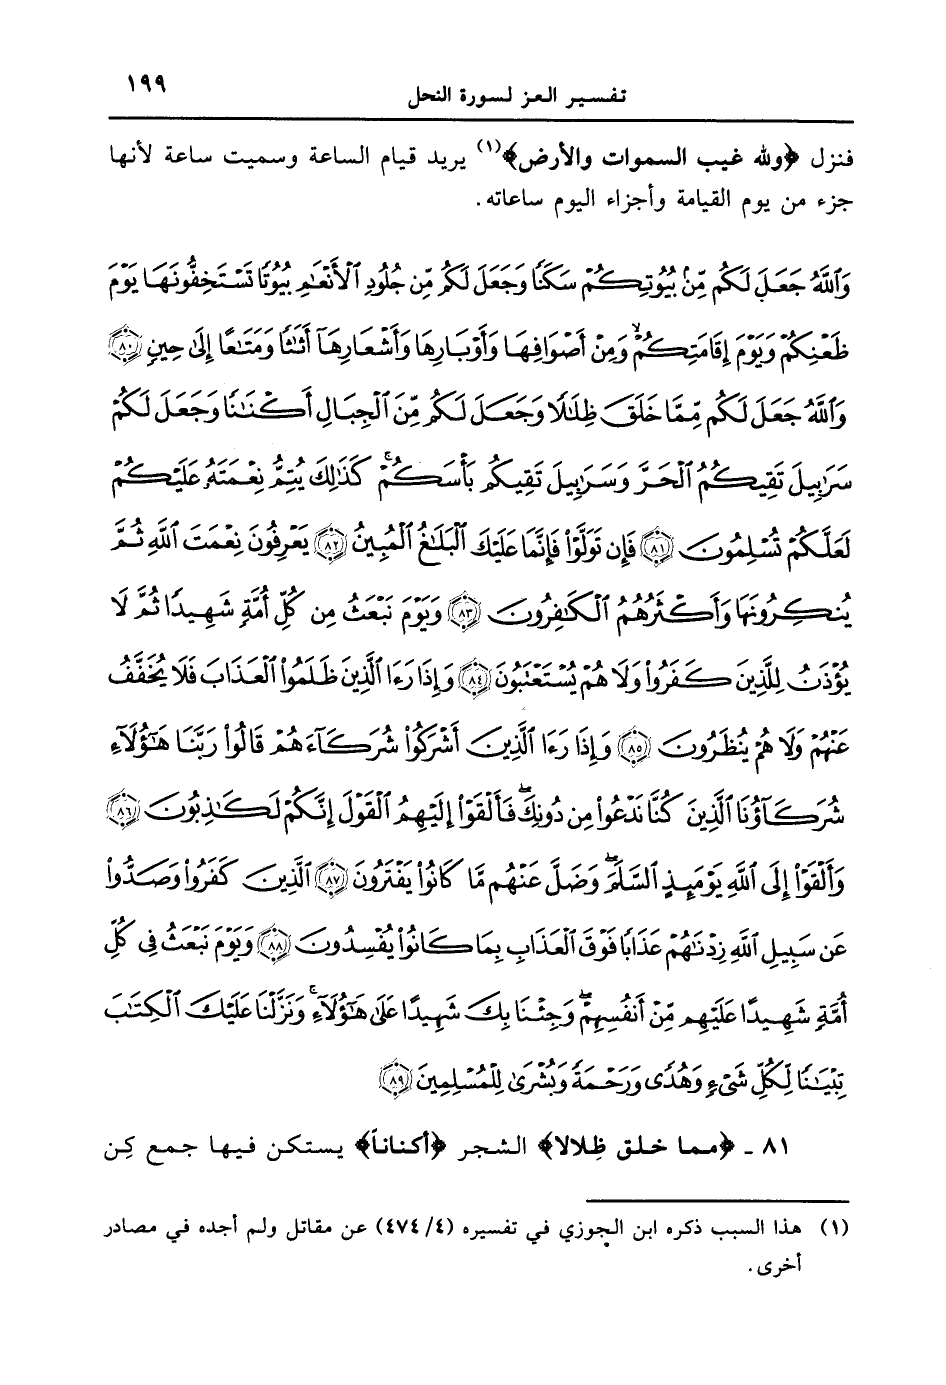 تفسير العز لسورة النحل ١٩٩
فنزل ﴿ولله غيب السموات والأرض﴾(١) يريد قيام الساعة وسميت ساعة لأنها
جزء من يوم القيامة وأجزاء اليوم ساعاته.
وَٱللَّهُ جَعَلَ لَكُم مِّنۢ بُيُوتِكُمْ سَكَنًا وَجَعَلَ لَكُم مِّن جُلُودِ ٱلْأَنْعَٰمِ بُيُوتًا تَسْتَخِفُّونَهَا يَوْمَ
ظَعْنِكُمْ وَيَوْمَ إِقَامَتِكُمْ ۙ وَمِنْ أَصْوَافِهَا وَأَوْبَارِهَا وَأَشْعَارِهَآ أَثَٰثًا وَمَتَٰعًا إِلَىٰ حِينٍ ﴿٨٠﴾
وَٱللَّهُ جَعَلَ لَكُم مِّمَّا خَلَقَ ظِلَٰلًا وَجَعَلَ لَكُم مِّنَ ٱلْجِبَالِ أَكْنَٰنًا وَجَعَلَ لَكُمْ
سَرَٰبِيلَ تَقِيكُمُ ٱلْحَرَّ وَسَرَٰبِيلَ تَقِيكُم بَأْسَكُمْ ۚ كَذَٰلِكَ يُتِمُّ نِعْمَتَهُۥ عَلَيْكُمْ
لَعَلَّكُمْ تُسْلِمُونَ ﴿٨١﴾ فَإِن تَوَلَّوْا۟ فَإِنَّمَا عَلَيْكَ ٱلْبَلَٰغُ ٱلْمُبِينُ ﴿٨٢﴾ يَعْرِفُونَ نِعْمَتَ ٱللَّهِ ثُمَّ
يُنكِرُونَهَا وَأَكْثَرُهُمُ ٱلْكَٰفِرُونَ ﴿٨٣﴾ وَيَوْمَ نَبْعَثُ مِن كُلِّ أُمَّةٍ شَهِيدًا ثُمَّ لَا
يُؤْذَنُ لِلَّذِينَ كَفَرُوا۟ وَلَا هُمْ يُسْتَعْتَبُونَ ﴿٨٤﴾ وَإِذَا رَءَا ٱلَّذِينَ ظَلَمُوا۟ ٱلْعَذَابَ فَلَا يُخَفَّفُ
عَنْهُمْ وَلَا هُمْ يُنظَرُونَ ﴿٨٥﴾ وَإِذَا رَءَا ٱلَّذِينَ أَشْرَكُوا۟ شُرَكَآءَهُمْ قَالُوا۟ رَبَّنَا هَٰٓؤُلَآءِ
شُرَكَآؤُنَا ٱلَّذِينَ كُنَّا نَدْعُوا۟ مِن دُونِكَ ۖ فَأَلْقَوْا۟ إِلَيْهِمُ ٱلْقَوْلَ إِنَّكُمْ لَكَٰذِبُونَ ﴿٨٦﴾
وَأَلْقَوْا۟ إِلَى ٱللَّهِ يَوْمَئِذٍ ٱلسَّلَمَ ۖ وَضَلَّ عَنْهُم مَّا كَانُوا۟ يَفْتَرُونَ ﴿٨٧﴾ ٱلَّذِينَ كَفَرُوا۟ وَصَدُّوا۟
عَن سَبِيلِ ٱللَّهِ زِدْنَٰهُمْ عَذَابًا فَوْقَ ٱلْعَذَابِ بِمَا كَانُوا۟ يُفْسِدُونَ ﴿٨٨﴾ وَيَوْمَ نَبْعَثُ فِى كُلِّ
أُمَّةٍ شَهِيدًا عَلَيْهِم مِّنْ أَنفُسِهِمْ ۖ وَجِئْنَا بِكَ شَهِيدًا عَلَىٰ هَٰٓؤُلَآءِ ۚ وَنَزَّلْنَا عَلَيْكَ ٱلْكِتَٰبَ
تِبْيَٰنًا لِّكُلِّ شَىْءٍ وَهُدًى وَرَحْمَةً وَبُشْرَىٰ لِلْمُسْلِمِينَ ﴿٨٩﴾
٨١ - ﴿مما خلق ظِلالا﴾ الشجر ﴿أكناناً﴾ يستكن فيها جمع كِن
(١) هذا السبب ذكره ابن الجوزي في تفسيره (٤/ ٤٧٤) عن مقاتل ولم أجده في مصادر
أخرى.